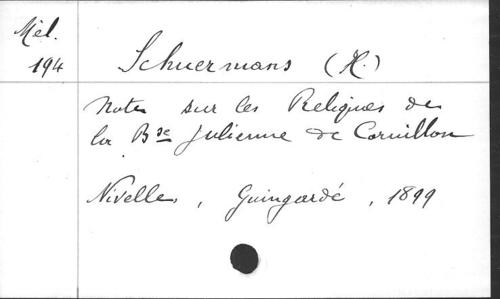 Mél.
194
Schuermans (H.)
Note sur les Reliques de
la Bse Julienne de Cornillon
Nivelles, Guingardé, 1899